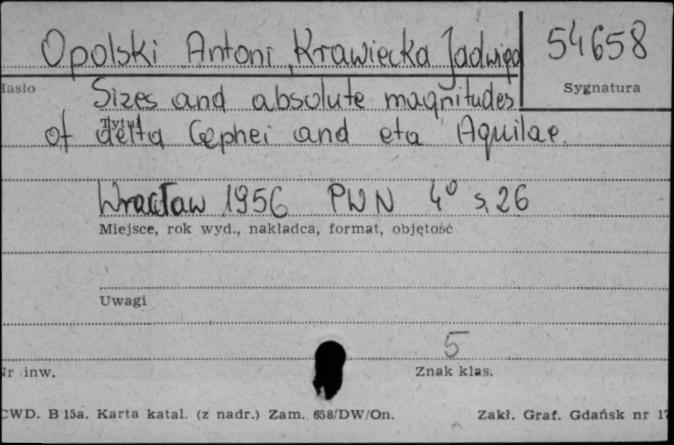 Opolski Antoni, Krawiecka Jadwiga 54658
Hasło Sygnatura
Sizes and absolute magnitudes
Tytuł
of delta Cephei and eta Aquilae.
Wrocław 1956 PWN 4° s. 26
Miejsce, rok wyd., nakładca, format, objętość
Uwagi
5
Nr inw. Znak klas.
CWD. B 15a. Karta katal. (z nadr.) Zam. 658/DW/On. Zakł. Graf. Gdańsk nr 17